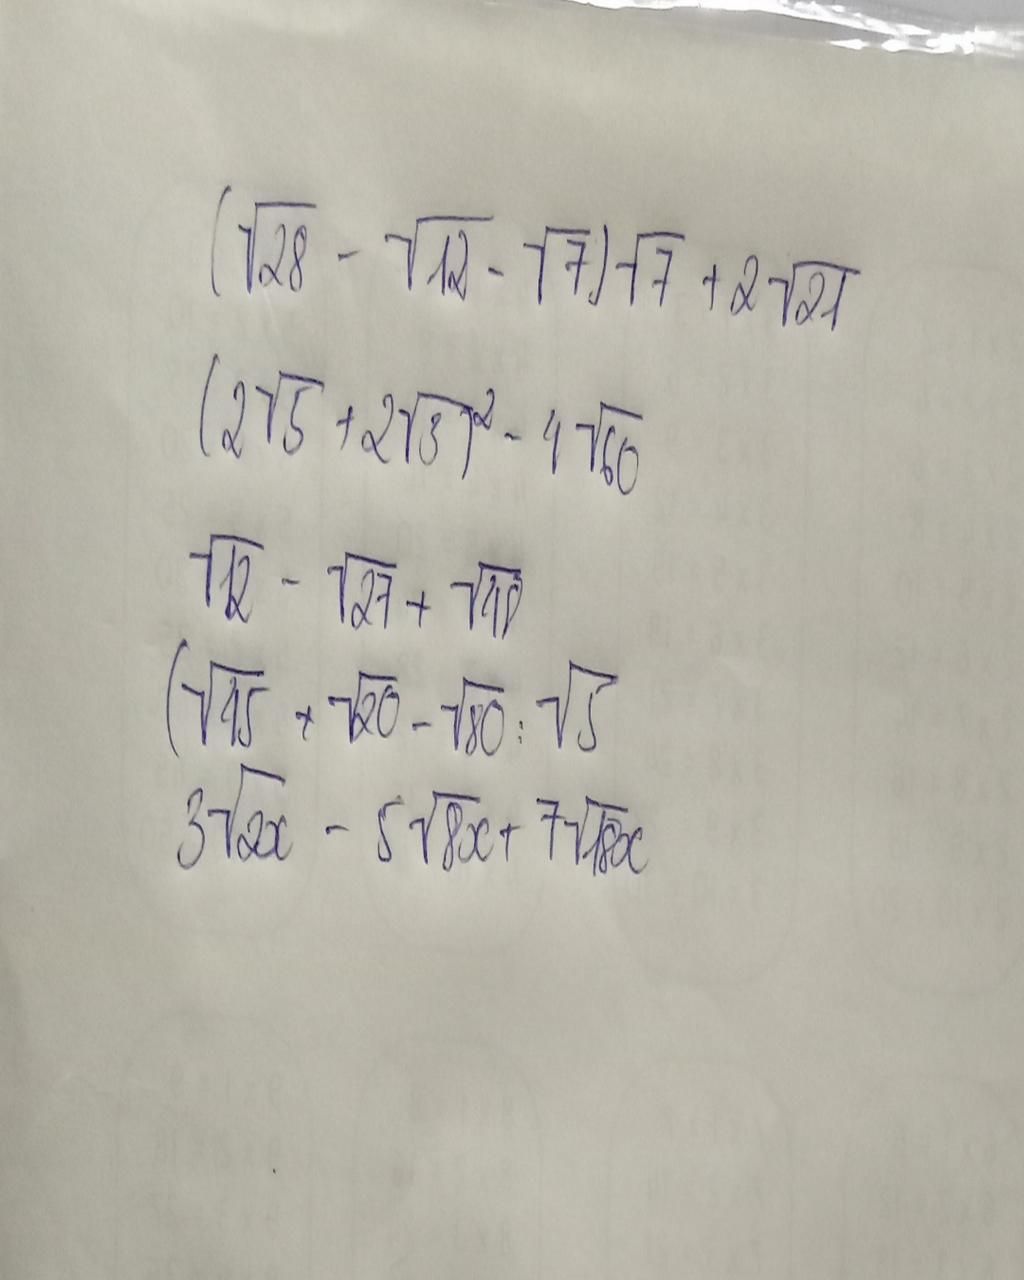 (√28 - √12 - √7)√7 + 2√21
(2√5 + 2√3)² - 4√60
√12 - √27 + √48
(√45 + √20 - √80 : √5
3√2x - 5√8x + 7√18x